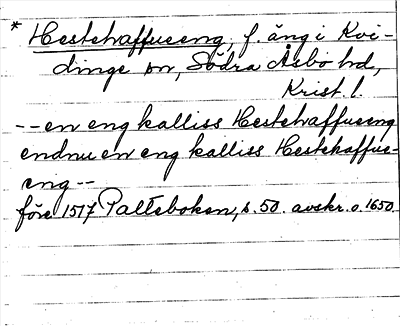 * Hestehaffueeng, f. äng i Kvi-
dinge sn, Södra Åsbo hd,
Krist. l.
--en eng kalliss Hestehaffueng
endnu en eng kalliss Hestehaffue-
eng--
före 1517 Palteboken, s. 50. avskr. o. 1650.